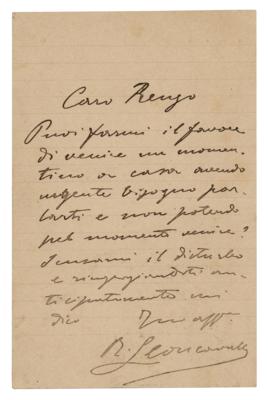 Caro Renzo
Puoi farmi il favore
di venire un momen-
tino a casa avendo
urgente bisogno par-
larti e non potendo
pel momento venire?
Scusami il disturbo
e ringraziandoti an-
ticipatamente mi
dico Tuo aff.
R. Leoncavallo